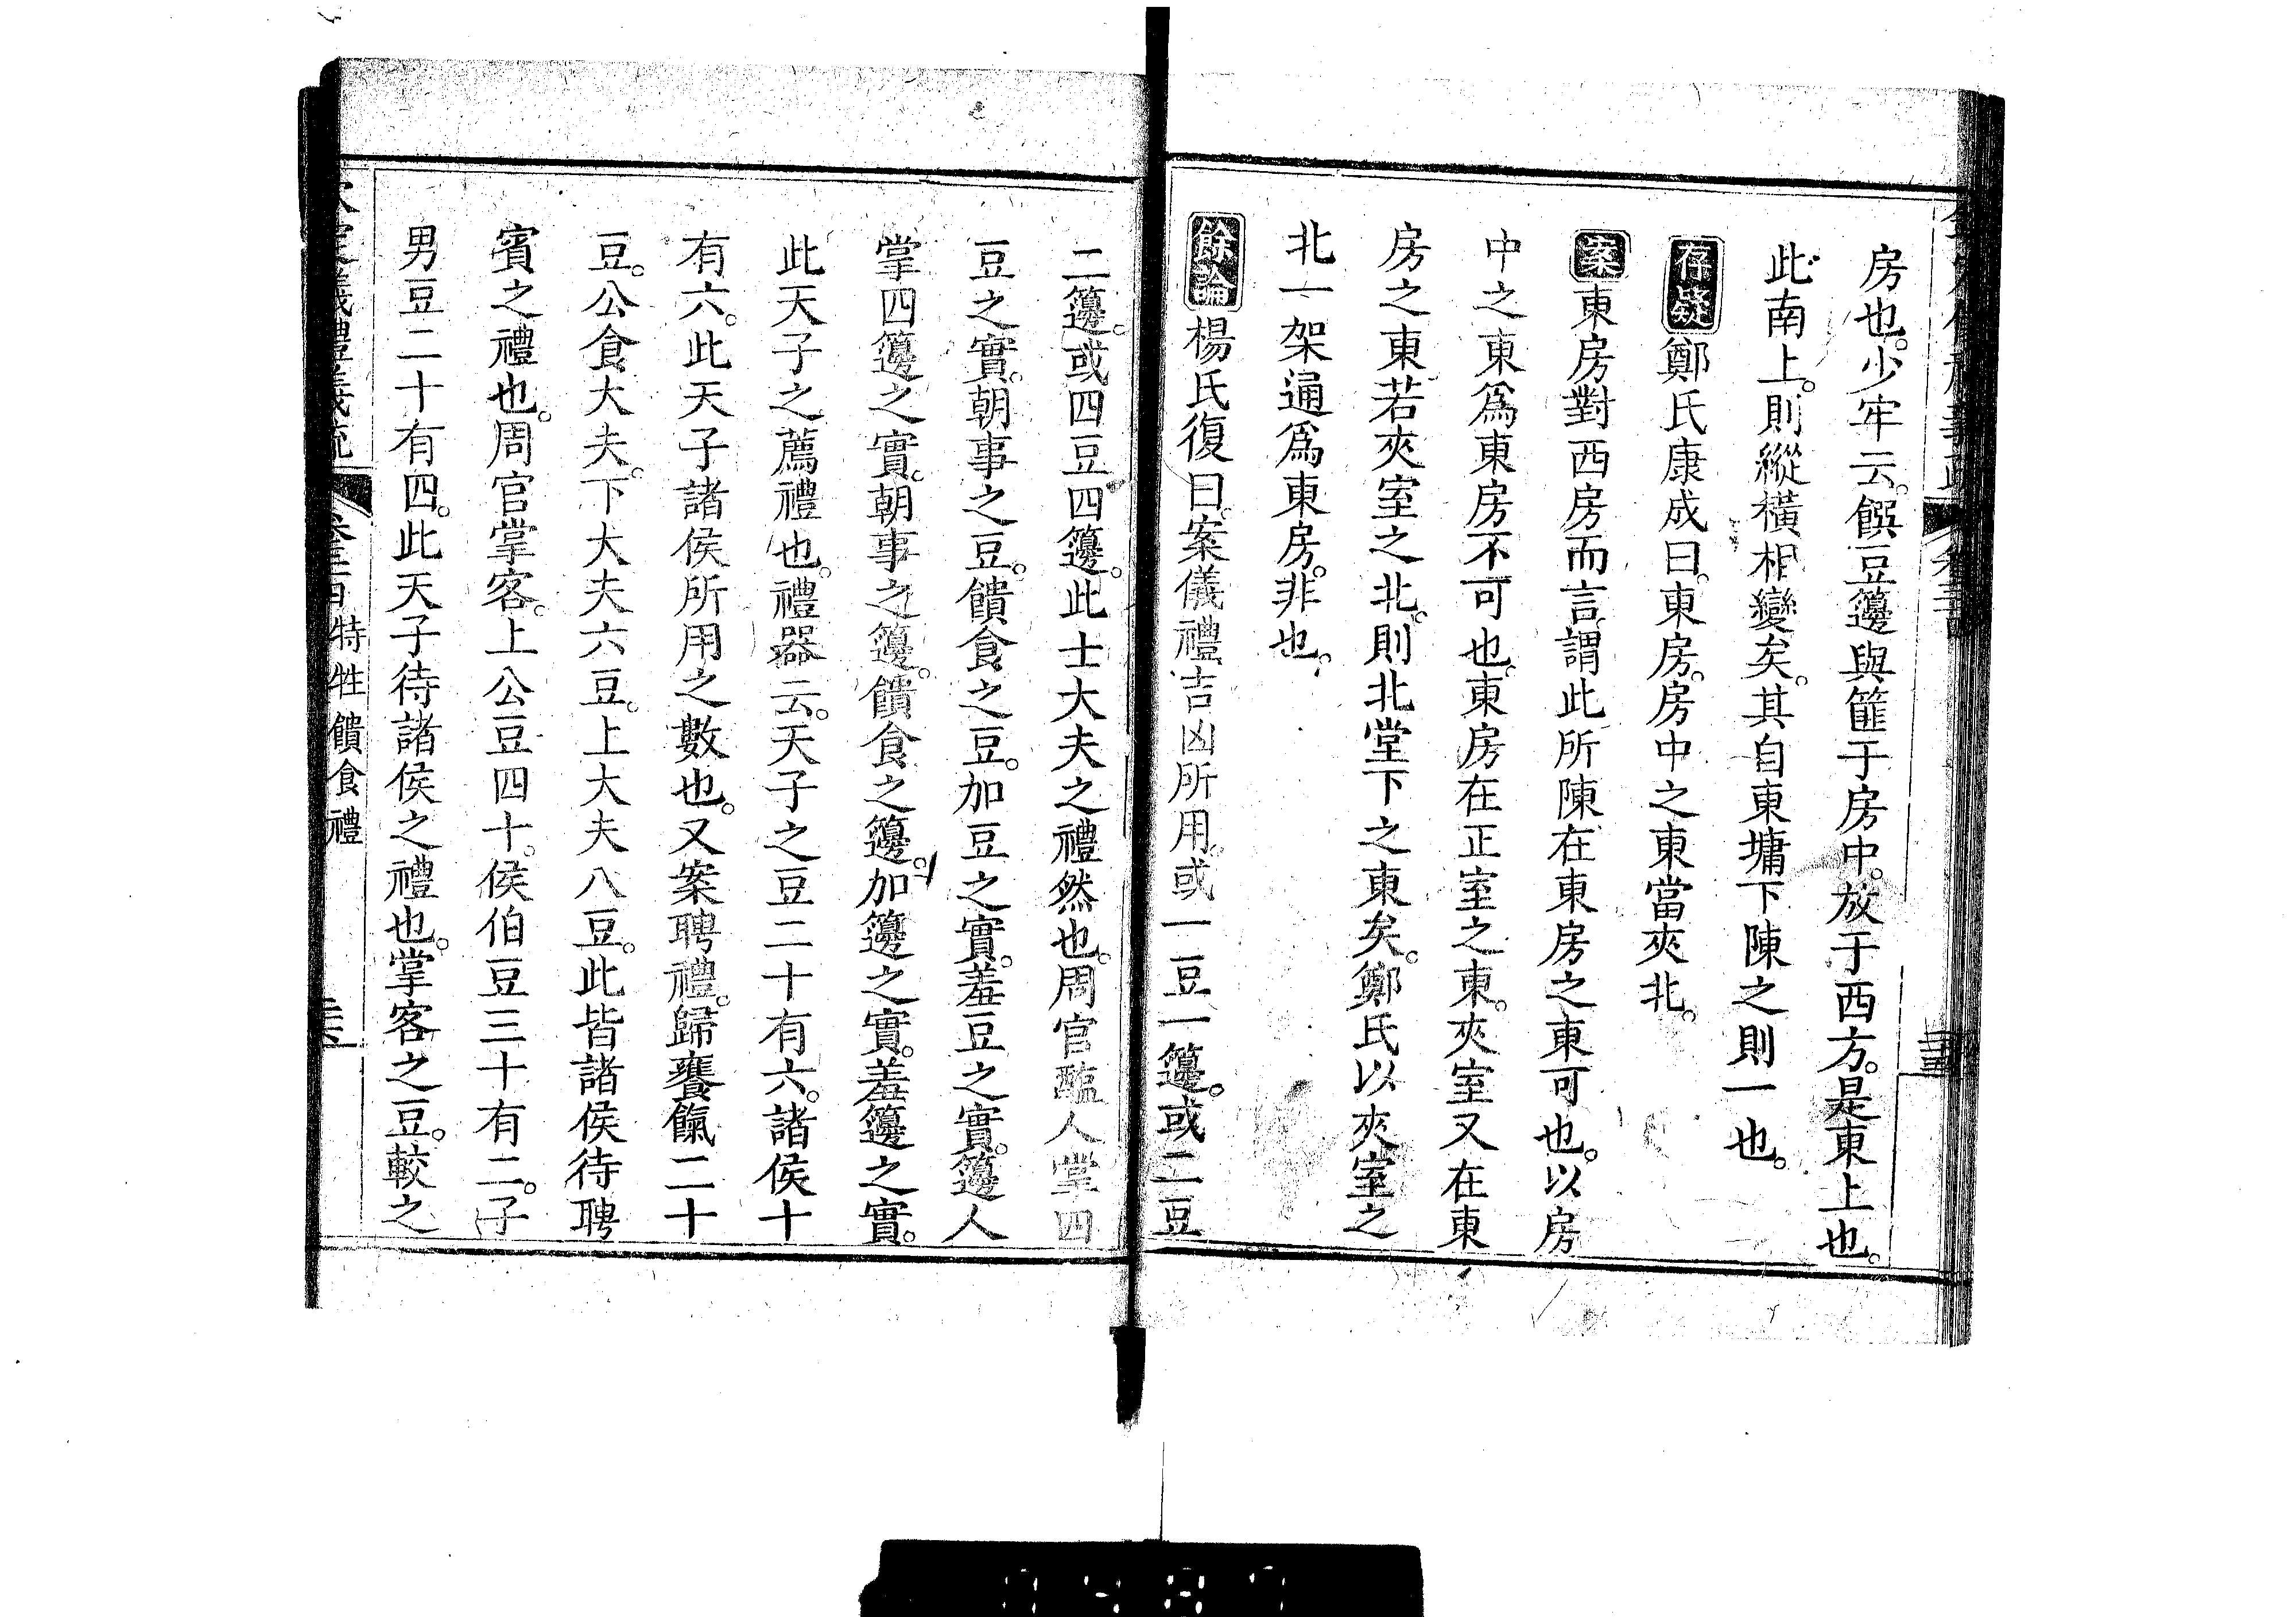 房也。少牢云。饌豆籩與篚于房中。放于西方。是東上也。
此南上。則縱橫相變矣。其自東墉下陳之則一也。
存疑鄭氏康成曰。東房。房中之東當夾北。
案東房對西房而言。謂此所陳在東房之東可也。以房
中之東爲東房不可也。東房在正室之東。夾室又在東
房之東若夾室之北。則北堂下之東矣。鄭氏以夾室之
北一架通爲東房。非也。
餘論楊氏復曰。案儀禮吉凶所用。或一豆一籩。或二豆
二籩。或四豆四籩。此士大夫之禮然也。周官醢人掌四
豆之實。朝事之豆。饋食之豆。加豆之實。羞豆之實。籩人
掌四籩之實。朝事之籩。饋食之籩。加籩之實。羞籩之實。
此天子之薦禮也。禮器云。天子之豆二十有六。諸侯十
有六。此天子諸侯所用之數也。又案聘禮。歸饔餼二十
豆。公食大夫。下大夫六豆。上大夫八豆。此皆諸侯待聘
賓之禮也。周官掌客。上公豆四十。侯伯豆三十有二。子
男豆二十有四。此天子待諸侯之禮也。掌客之豆。較之
儀禮義疏 特牲饋食禮